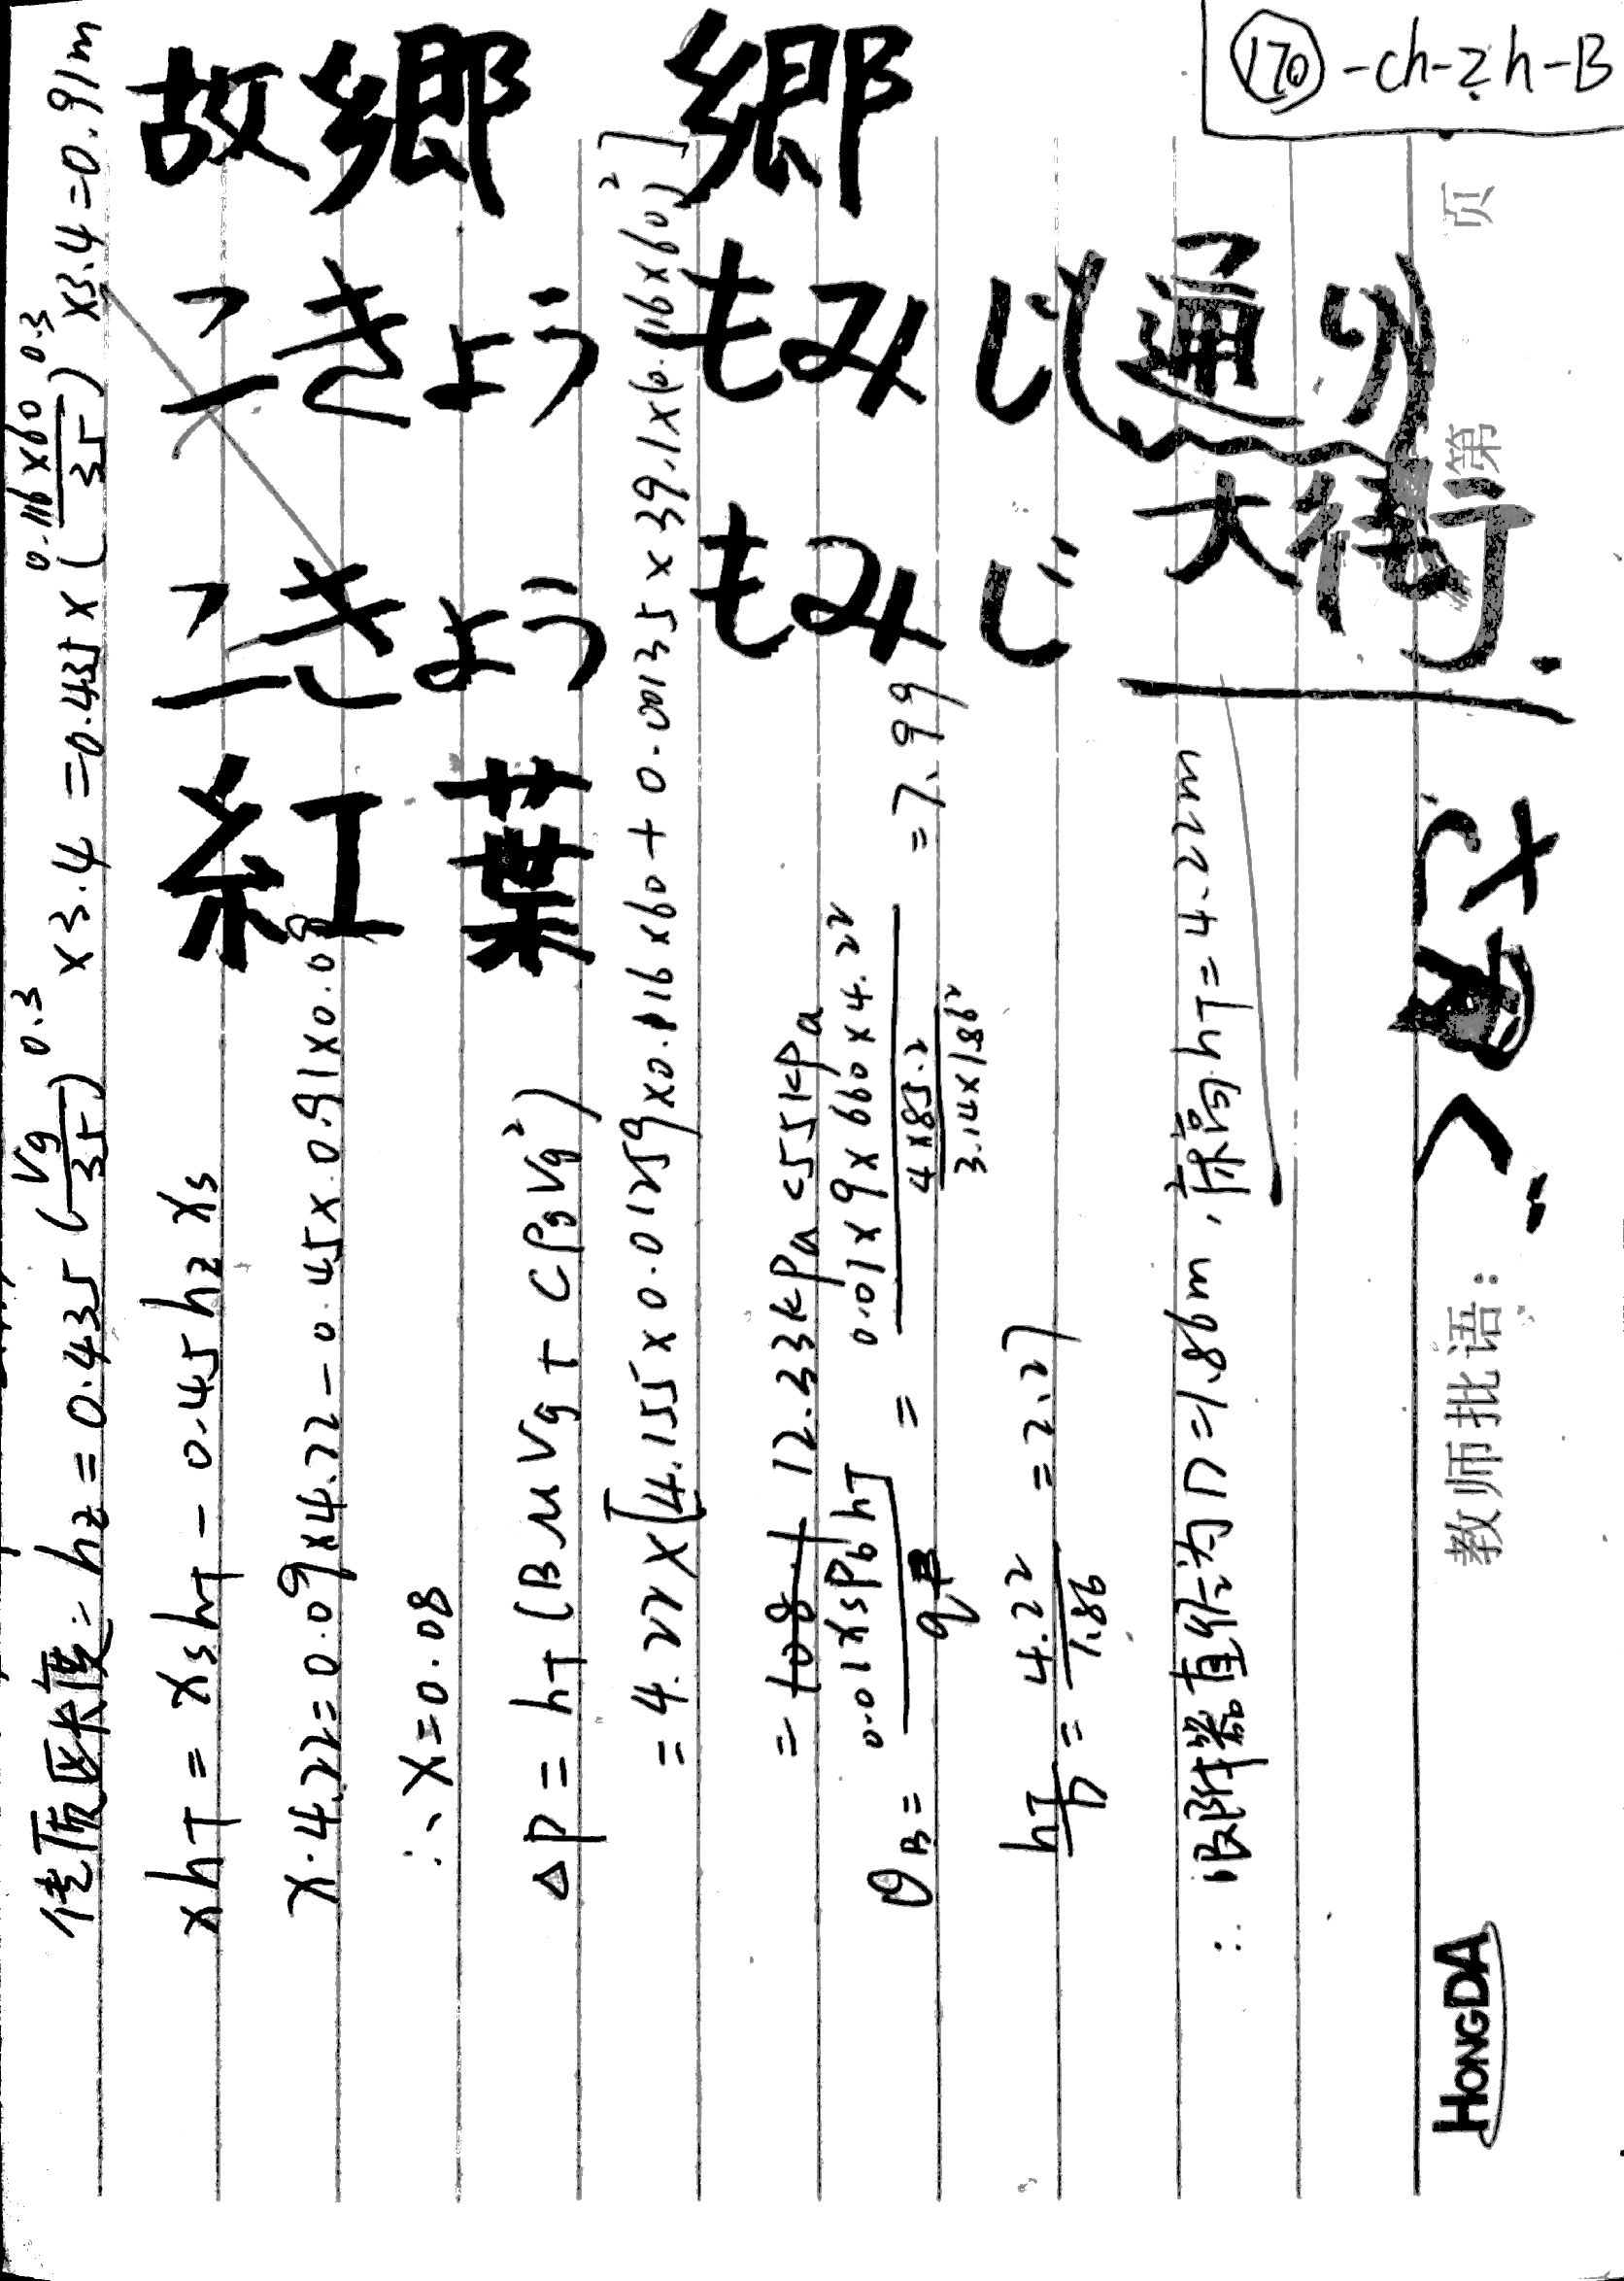 170-ch-zh-B
故郷 郷
こきょう もみじ(通り)
大街.
こきょう もみじ
紅葉
传质区长度: hz = 0.435 (Vg/35)^0.3 ×3.4 = 0.435 × (0.116×60/35)^0.3 ×3.4 = 0.91m
xhT = xshT - 0.45 hz xs
x·4.22 = 0.09×4.22 - 0.45×0.91×0.09
∴ x = 0.08
ΔP = hT (BμVg + Cρg Vg²)
= 4.22 × [4.155×0.01259×0.116×60 + 0.00135×39.1×(0.116×60)²]
= 12.33kPa < 55kPa
θB = 0.01xsρb hT / q = 0.01×9×660×4.22 / (4×85.2 / 3.14×1.86²) = 7.99
hT/D = 4.22/1.86 = 2.27
∴ 吸附器直径为D=1.86m, 床高hT=4.22m
第 页
教师批语:
HONGDA